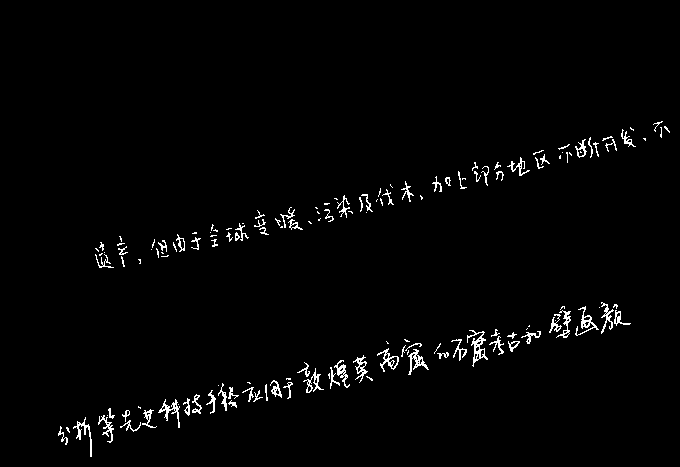 遗产，但由于全球变暖、污染及伐木，加上部分地区不断开发、不
分析等先进科技手段应用于敦煌莫高窟的石窟考古和壁画颜